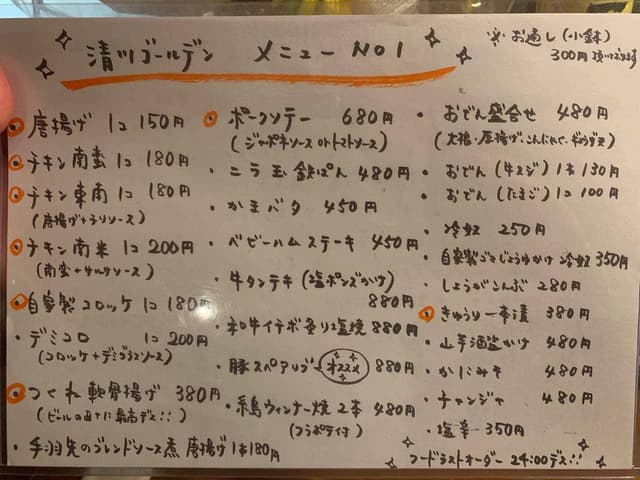 清川ゴールデン メニュー NO1
※お通し(小鉢)
300円頂いております
・唐揚げ 1コ 150円
・チキン南蛮 1コ 180円
・チキン東南 1コ 180円
(唐揚げ+チリソース)
・チキン南米 1コ 200円
(南蛮+サルサソース)
・自家製コロッケ 1コ 180円
・デミコロ 1コ 200円
(コロッケ+デミグラスソース)
・つくね軟骨揚げ 380円
(ビールのあてに最高デス!!)
・手羽先のブレンドソース煮 唐揚げ 1本180円
・ポークソテー 680円
(ジャポネソース orトマトソース)
・ニラ玉鉄ぱん 480円
・かまバタ 450円
・ベビーハムステーキ 450円
・牛タンテキ(塩ポンズかけ)
880円
・和牛イチボ炙り塩焼 880円
・豚スペアリブ オススメ 880円
・糸島ウィンナー焼 2本 480円
(フラポテイ付)
・おでん盛合せ 480円
(大根・厚揚げ・こんにゃく・ギョウザ天)
・おでん(牛スジ) 1本130円
・おでん(たまご) 1コ 100円
・冷奴 250円
・自家製ごまじょうゆかけ 冷奴 350円
・しょうがこんぶ 280円
・きゅうり一本漬 380円
・山芋酒盗かけ 480円
・かにみそ 480円
・チャンジャ 480円
・塩辛 350円
フードラストオーダー 24:00デス!!